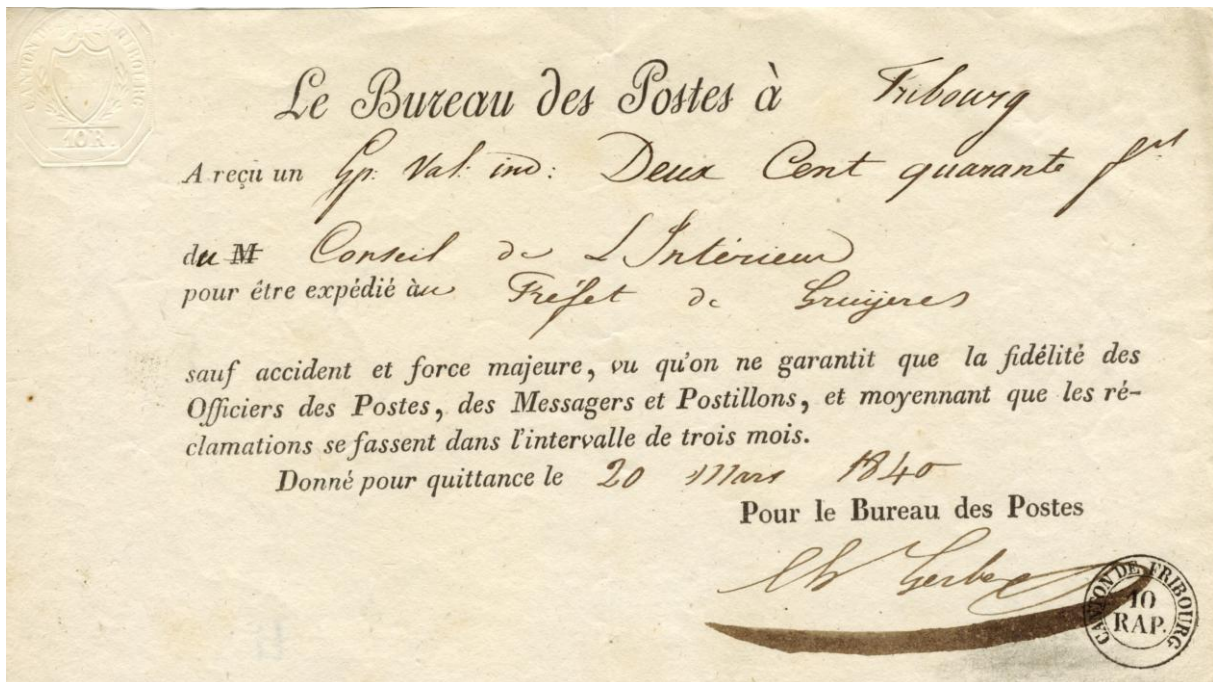 CANTON DE FRIBOURG
10 R.
Le Bureau des Postes à Fribourg
A reçu un Gp. Val. ind: Deux Cent quarante frs
du M Conseil de L'Intérieur
pour être expédié au Préfet de Gruyères
sauf accident et force majeure, vu qu'on ne garantit que la fidélité des
Officiers des Postes, des Messagers et Postillons, et moyennant que les ré-
clamations se fassent dans l'intervalle de trois mois.
Donné pour quittance le 20 Mars 1840
Pour le Bureau des Postes
Gerber
CANTON DE FRIBOURG
10
RAP.